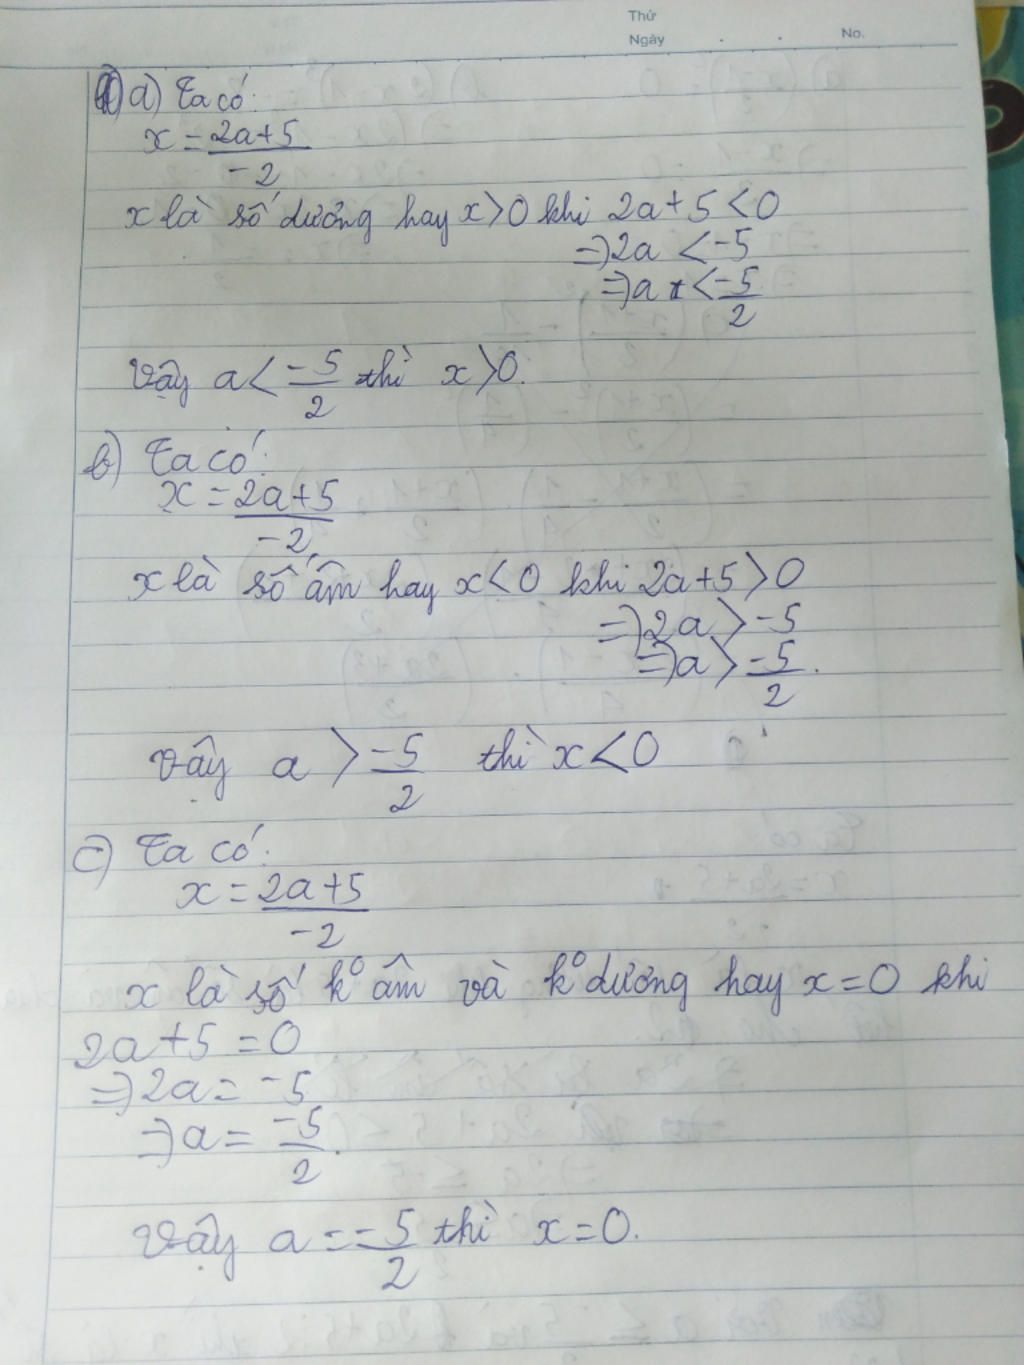 Thứ
Ngày . . No.
1) a) Ta có:
x = 2a+5
-2
x là số dương hay x>0 khi 2a+5<0
=> 2a < -5
=> a < -5
2
Vậy a < -5 thì x>0.
2
b) Ta có:
x = 2a+5
-2
x là số âm hay x<0 khi 2a+5>0
=> 2a > -5
=> a > -5.
2
Vậy a > -5 thì x<0
2
c) Ta có:
x = 2a+5
-2
x là số k° âm và k° dương hay x=0 khi
2a+5=0
=> 2a = -5
=> a = -5.
2
Vậy a = -5 thì x=0.
2